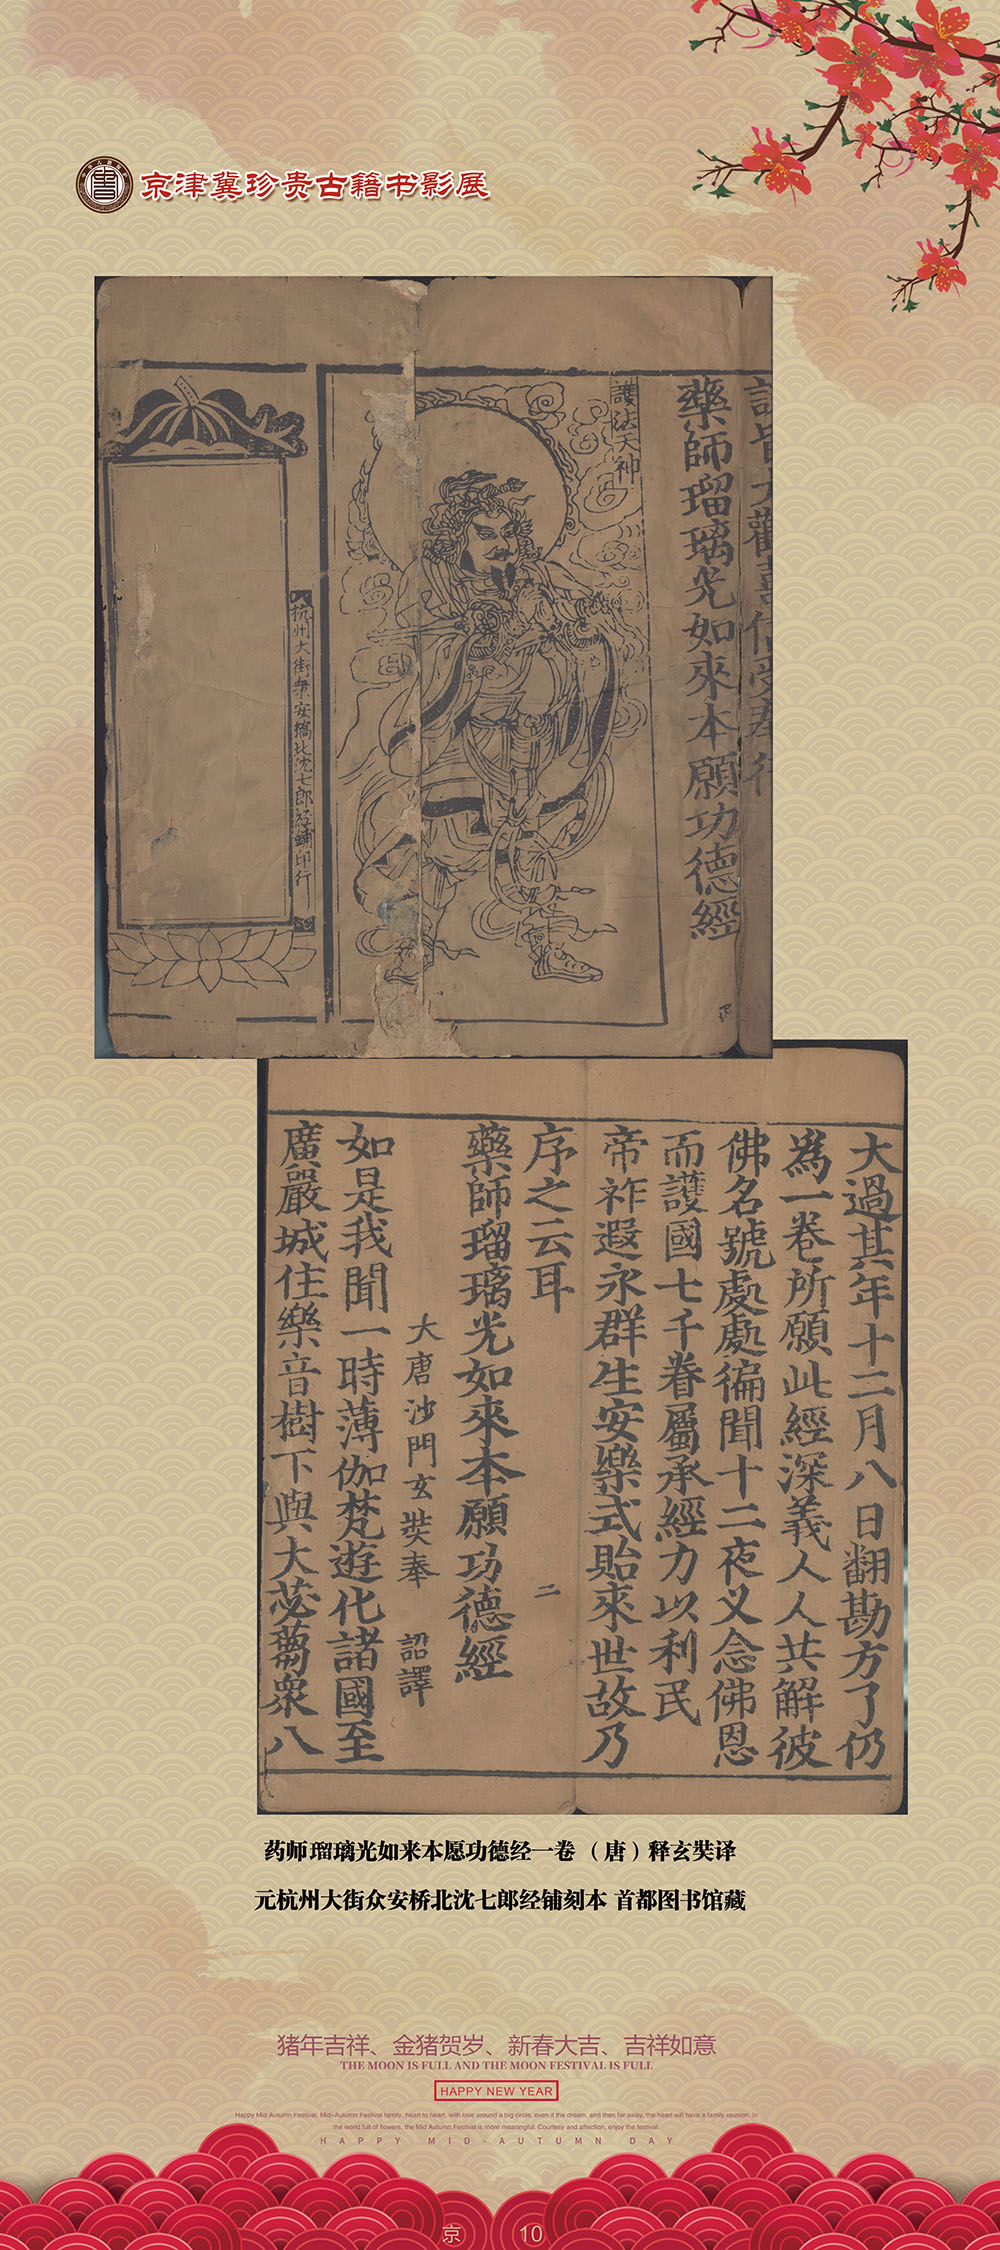 京津冀珍贵古籍书影展
藥師瑠璃光如來本願功德經
護法天神
杭州大街衆安橋北沈七郎經鋪印行
大過其年十二月八日翻勘方了仍
為一卷所願此經深義人人共解彼
佛名號處處徧聞十二夜叉念佛恩
而護國七千眷屬承經力以利民
帝祚遐永群生安樂式貽來世故乃
序之云耳
二
藥師瑠璃光如來本願功德經
大唐沙門玄奘奉 詔譯
如是我聞一時薄伽梵遊化諸國至
廣嚴城住樂音樹下與大苾蒭衆八
药师瑠璃光如来本愿功德经一卷（唐）释玄奘译
元杭州大街众安桥北沈七郎经铺刻本 首都图书馆藏
猪年吉祥、金猪贺岁、新春大吉、吉祥如意
THE MOON IS FULL AND THE MOON FESTIVAL IS FULL
HAPPY NEW YEAR
Happy Mid Autumn Festival, Mid-Autumn Festival family, heart to heart, with love around a big circle, even if the dream, and then far away, the heart will have a family reunion. In
the world full of flowers, the Mid Autumn Festival is more meaningful. Courtesy and affection, enjoy the festival.
HAPPY MID-AUTUMN DAY
京 10